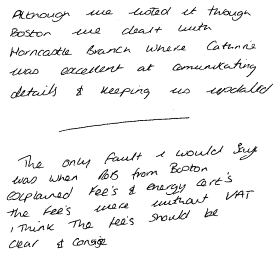 Although we listed it though
Boston we dealt with
Horncastle Branch where Catherine
was excellent at comunicating
details & keeping us updated
The only fault i would say
was when Rob from Boston
explained Fee's & energy cert's
the fee's were without VAT
i think the fee's should be
clear & concise